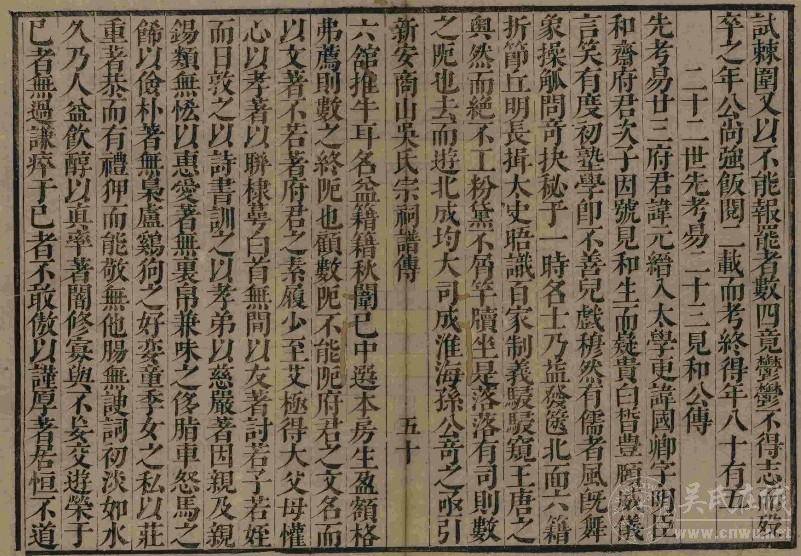 試棘圍又以不能報罷者數四竟鬱鬱不得志而歿
卒之年公尚強飯閱二載而考終得年八十有五
二十二世先考易二十三見和公傳
先考易廿三府君諱元縉入太學更諱國卿字明臣
和齋府君次子因號見和生而疑貴白皙豊頤威儀
言笑有度初塾學卽不善兒戲穆然有儒者風旣舞
象操觚問奇抉秘于一時名士乃益發篋北面六籍
折節丘明長揖太史晤識百家制義駸駸窺王唐之
奥然而絕不工粉黛不屑竿牘坐是落落有司則數
之阨也去而遊北成均大司成淮海孫公奇之亟引
新安商山吳氏宗祠譜傳
五十
六舘推牛耳名益籍籍秋闈已中選本房生盈額格
弗薦則數之終阨也顧數阨不能阨府君之文名而
以文著不若著府君之素履少至艾極得大父母懽
心以孝著以聯棣萼白首無間以友著討若子若姪
而日敦之以詩書訓之以孝弟以慈嚴著因親及親
錫類無恡以惠愛著無裏帛兼味之侈脂車怒馬之
餙以儉朴著無梟盧鷄狗之好孌童季女之私以莊
重著恭而有禮狎而能敬無他腸無諛詞初淡如水
久乃人益飲醇以眞率著闇修寡與不妄交遊榮于
已者無過謙瘁于已者不敢傲以謹厚著居恒不道
吳氏在線
www.cnwu.net